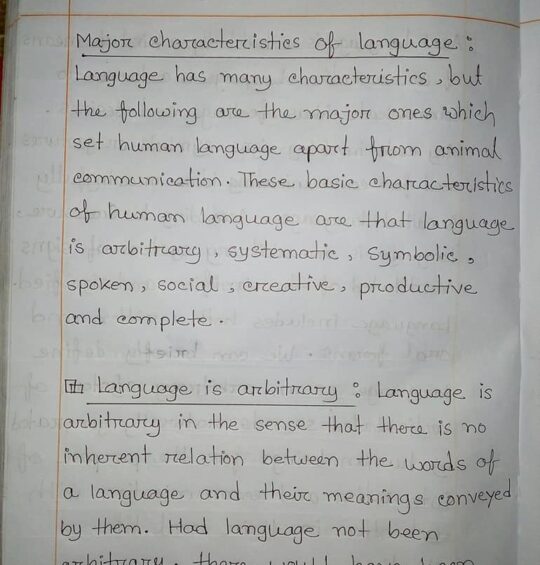 Major characteristics of language :
Language has many characteristics, but
the following are the major ones which
set human language apart from animal
communication. These basic characteristics
of human language are that language
is arbitrary, systematic, symbolic,
spoken, social, creative, productive
and complete.
Language is arbitrary : Language is
arbitrary in the sense that there is no
inherent relation between the words of
a language and their meanings conveyed
by them. Had language not been
arbitrary, there would have